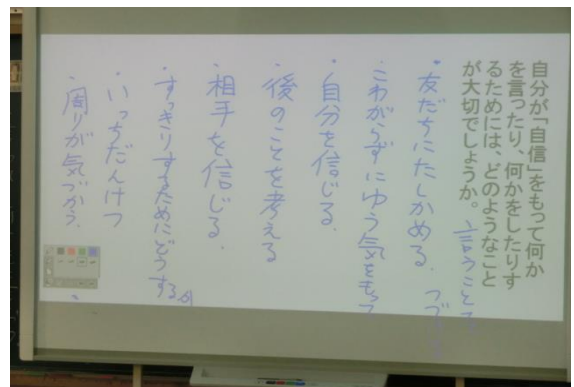 自分が「自信」をもって何か
を言ったり、何かをしたりす
るためには、どのようなこと
が大切でしょうか。
言うことを
・友だちにたしかめる。
・こわがらずにゆう気をもって
・自分を信じる。
・後のことを考える
・相手を信じる。
・すっきりするためにどうするか
・いっちだんけつ
・周りが気づかう。